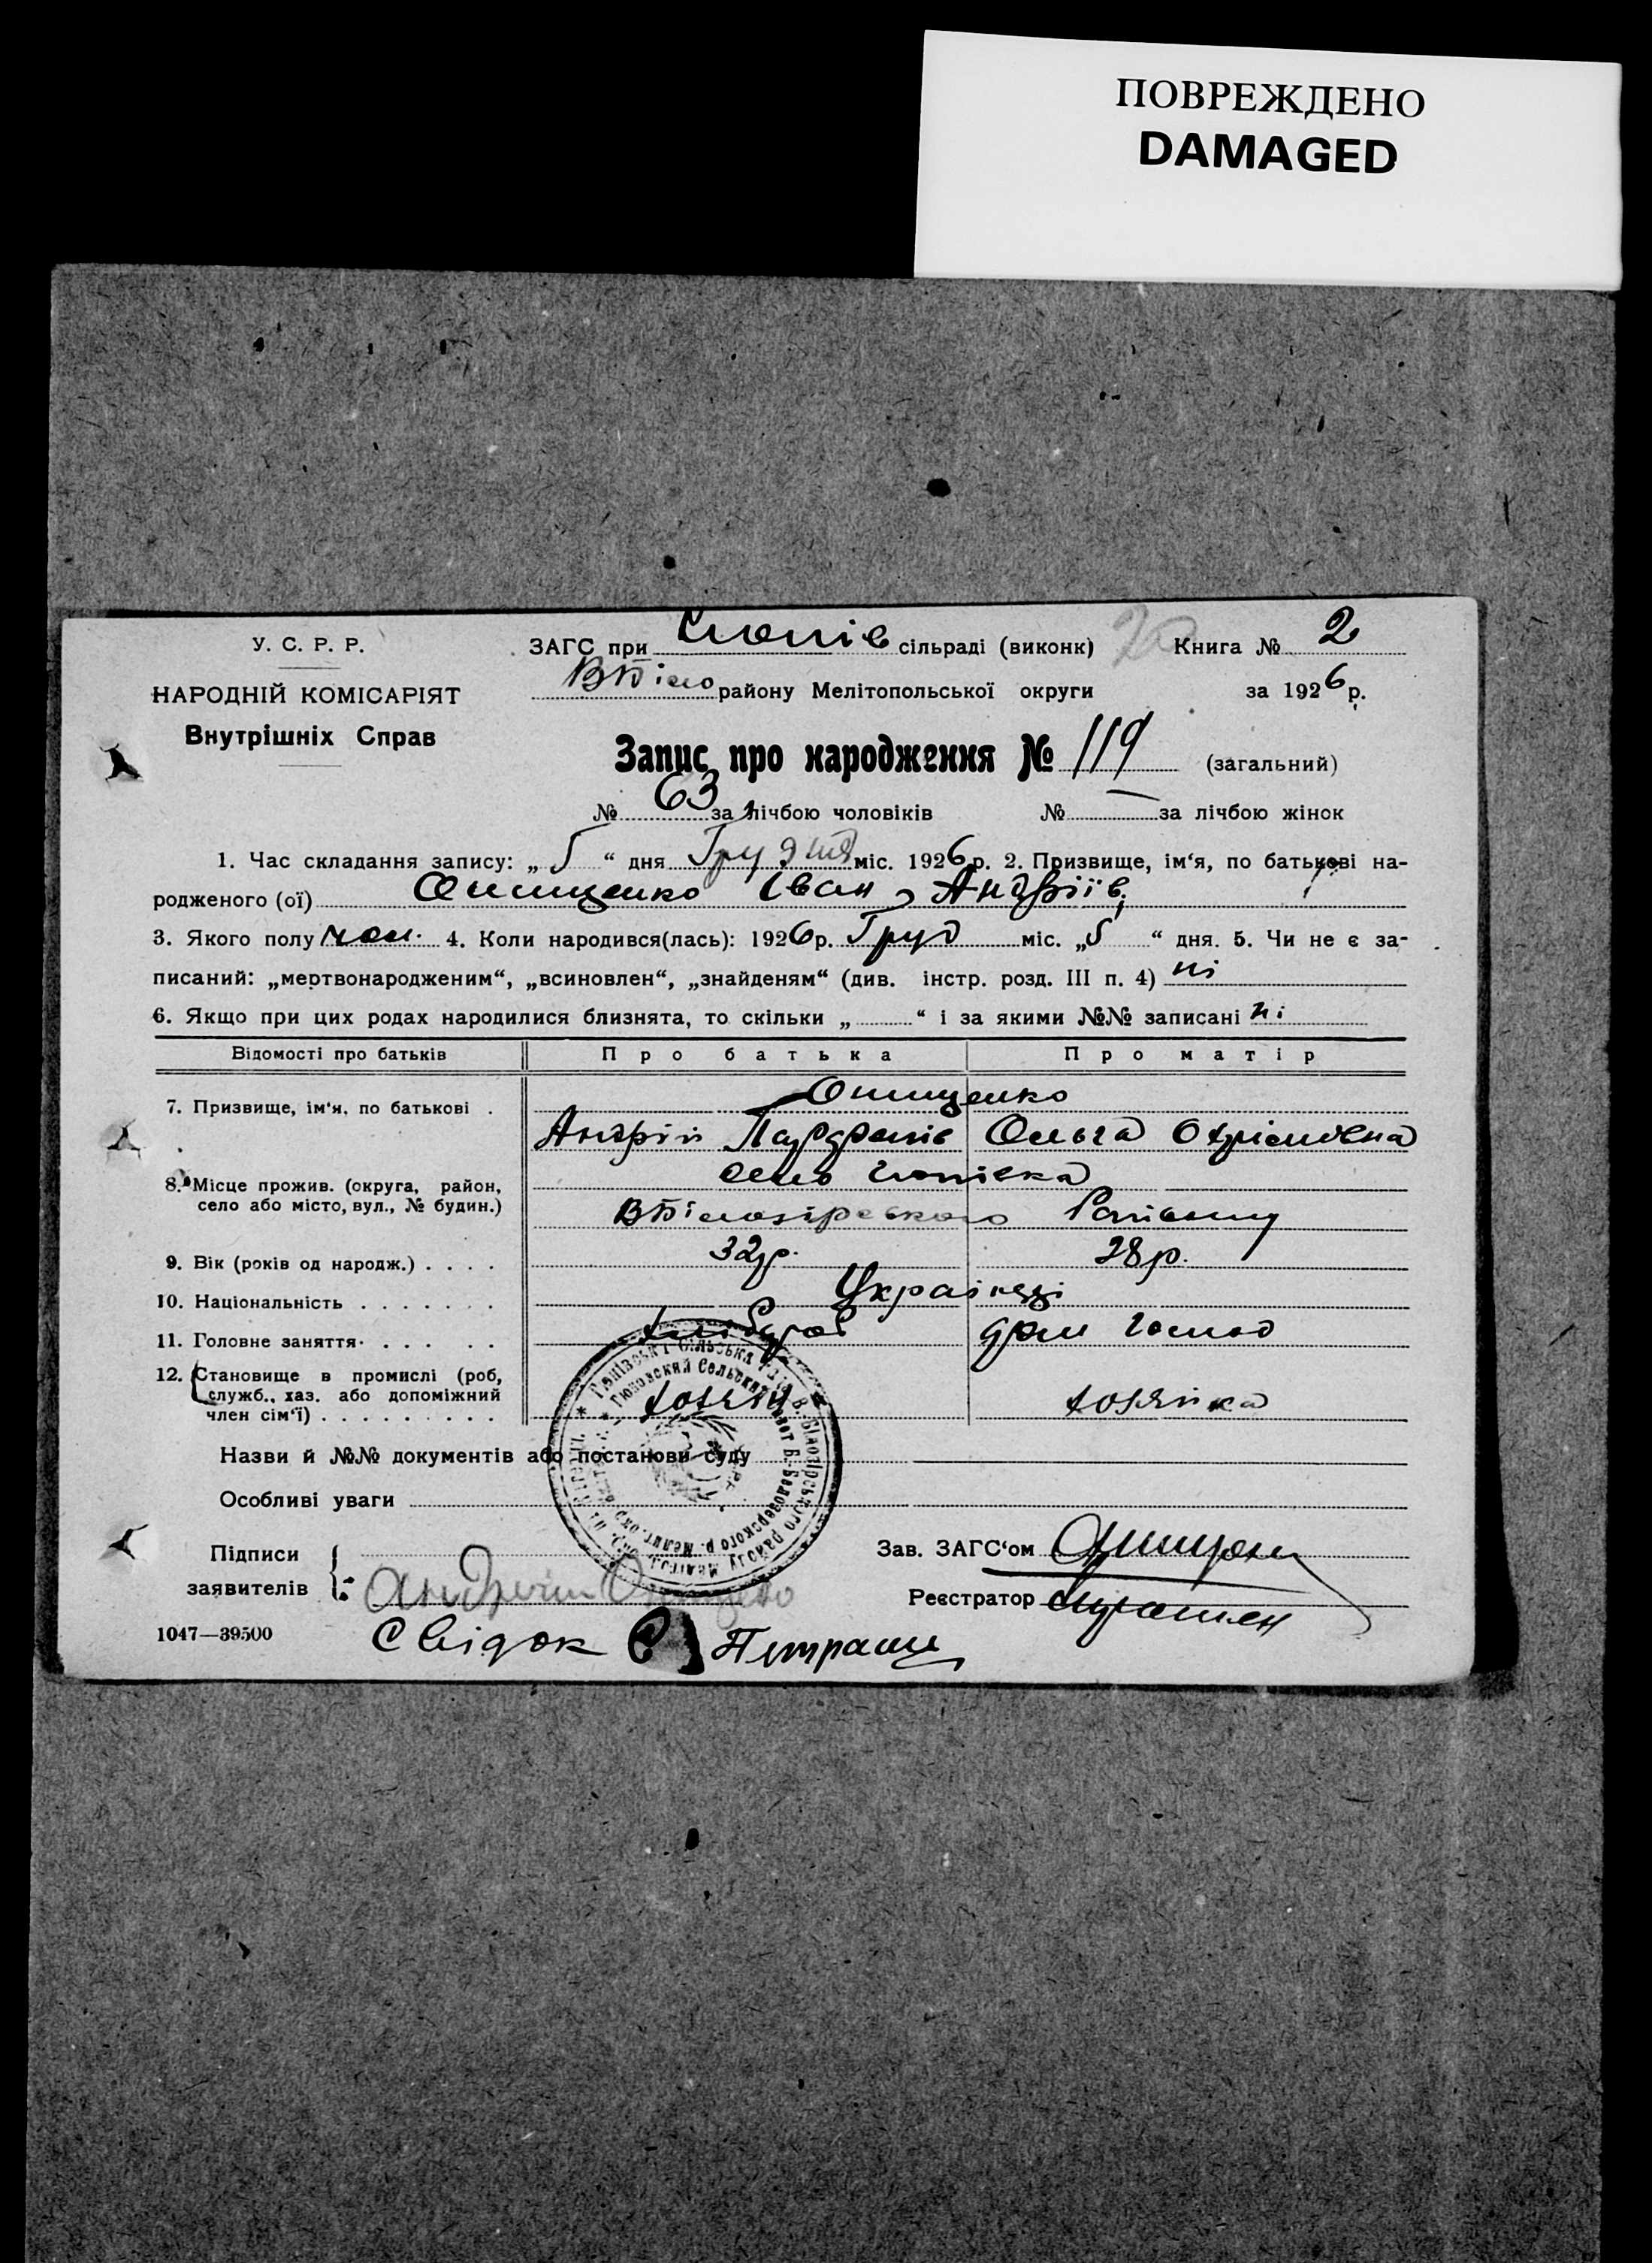 ПОВРЕЖДЕНО
DAMAGED
У. С. Р. Р.
НАРОДНІЙ КОМІСАРІЯТ
Внутрішніх Справ
ЗАГС при Гюнів сільраді (виконк) 20 Книга № 2
ВБіло району Мелітопольської округи за 1926 р.
Запис про народження № 119 (загальний)
№ 63 за лічбою чоловіків № — за лічбою жінок
1. Час складання запису: „ 5 “ дня Грудня міс. 1926 р. 2. Призвище, ім‘я, по батькові на-
родженого (ої) Онищенко Іван Андріїв
3. Якого полу чол. 4. Коли народився(лась): 1926 р. Груд міс. „5 “ дня. 5. Чи не є за-
писаний: „мертвонародженим“, „всиновлен“, „знайденям“ (див. інстр. розд. III п. 4) ні
6. Якщо при цих родах народилися близнята, то скільки „ “ і за якими №№ записані ні
Відомості про батьків Про батька Про матір
7. Призвище, ім‘я, по батькові . Онищенко
Андрій Ольга
8. Місце прожив. (округа, район, село або місто, вул., № будин.) село Гюнівка
ВБілозірського Району
9. Вік (років од народж.) . . . . 32р. 28р.
10. Національність . . . . . . . Українці
11. Головне заняття . . . . . Хлібороб дом господ
12. Становище в промислі (роб, служб., хаз. або допоміжний член сім‘ї) . . . . . . . . . хозяїн хозяйка
Назви й №№ документів або постанови суду
Особливі уваги
Підписи
заявителів
Зав. ЗАГС‘ом
Реєстратор
1047—39500
Свідок